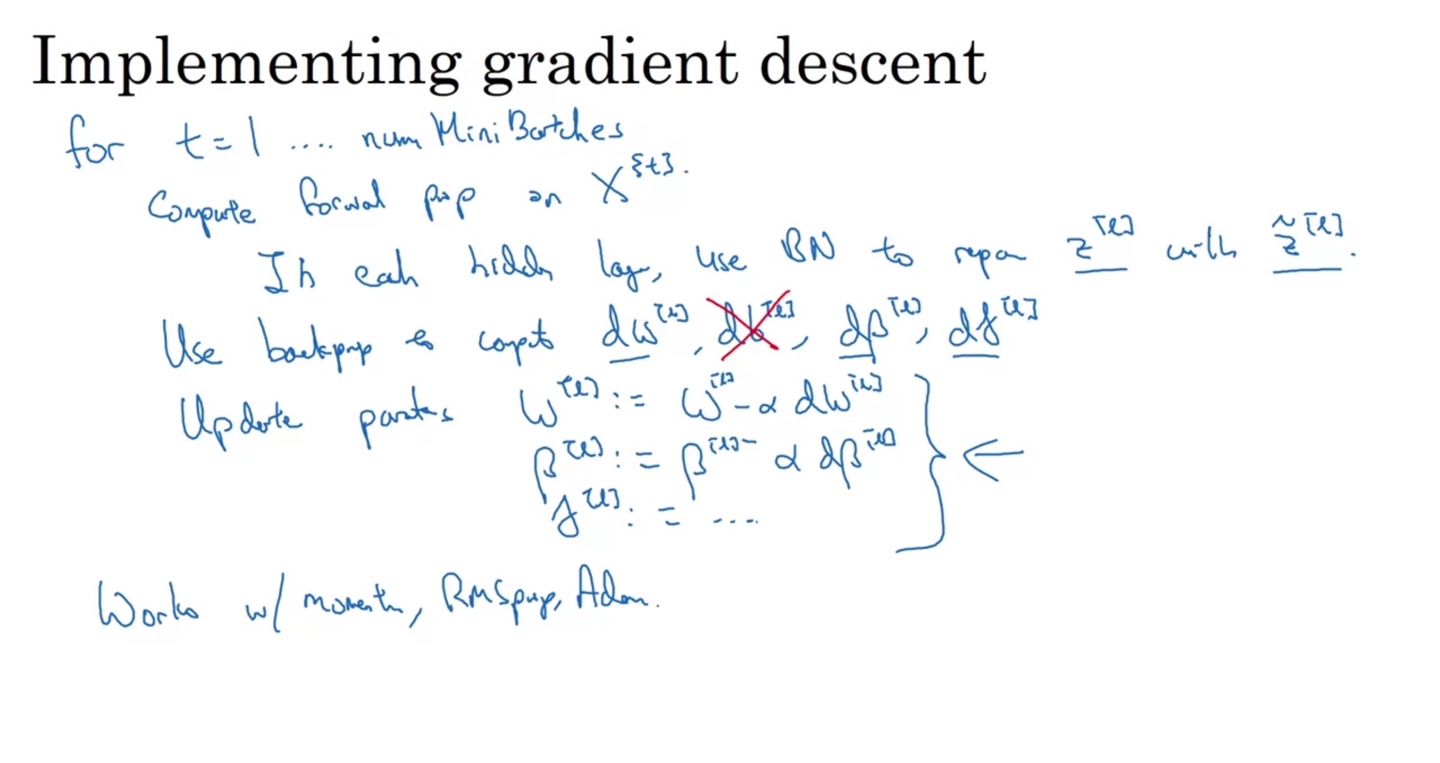 Implementing gradient descent
for t = 1 .... num MiniBatches
Compute forwal pop on X^{t}.
In eah hidden lay, use BN to repa z^[l] with z̃^[l].
Use backprop to compt dw^[l], db^[l], dβ^[l], dγ^[l]
Update parts w^[l] := w^[l] - α dw^[l]
β^[l] := β^[l] - α dβ^[l]
γ^[l] := ....
Works w/ moment, RMSprop, Adam.